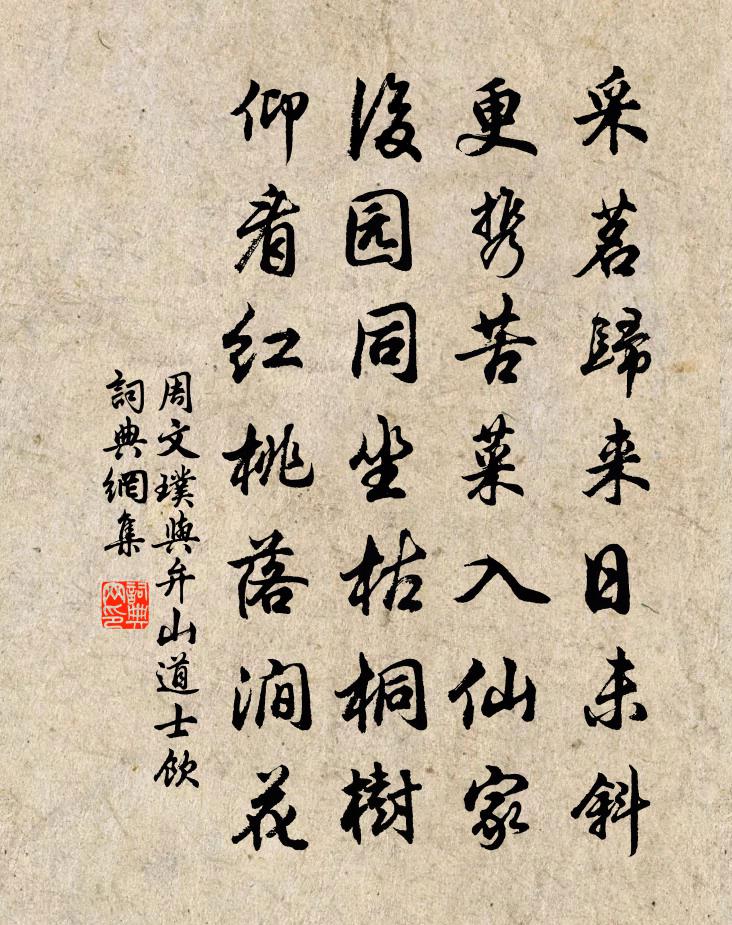 采茗歸来日未斜
更携苦菜入仙家
後园同坐枯桐樹
仰看红桃落澗花
周文璞與弁山道士飲
詞典網集
詞典網印